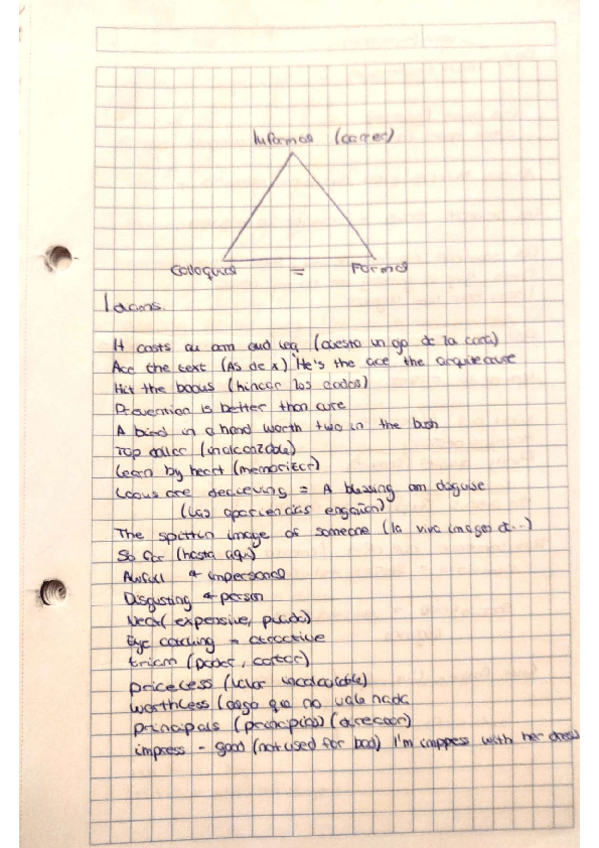 Informal (correct)
Colloquial = Formal
Idioms.
It costs an arm and leg (cuesta un ojo de la cara)
Ace the text (As de x) He's the ace the arquitecture
Hit the books (hincar los codos)
Prevention is better than cure
A bird in a hand worth two in the bush
Top (inalcanzable)
Learn by heart (memorizar)
Looks are decieving = A blessing am disguise
(Las apariencias engañan)
The spittin image of someone (la viva imagen d...)
So far (hasta aquí)
Awfull impersonal
Disgusting person
Neat (expensive,
Eye catching = atractive
(podar, cortar)
priceless (valor incalculable)
worthless (algo que no vale nada
principals (principios) (director)
impress - good (not used for bad) I'm imppess with her dress